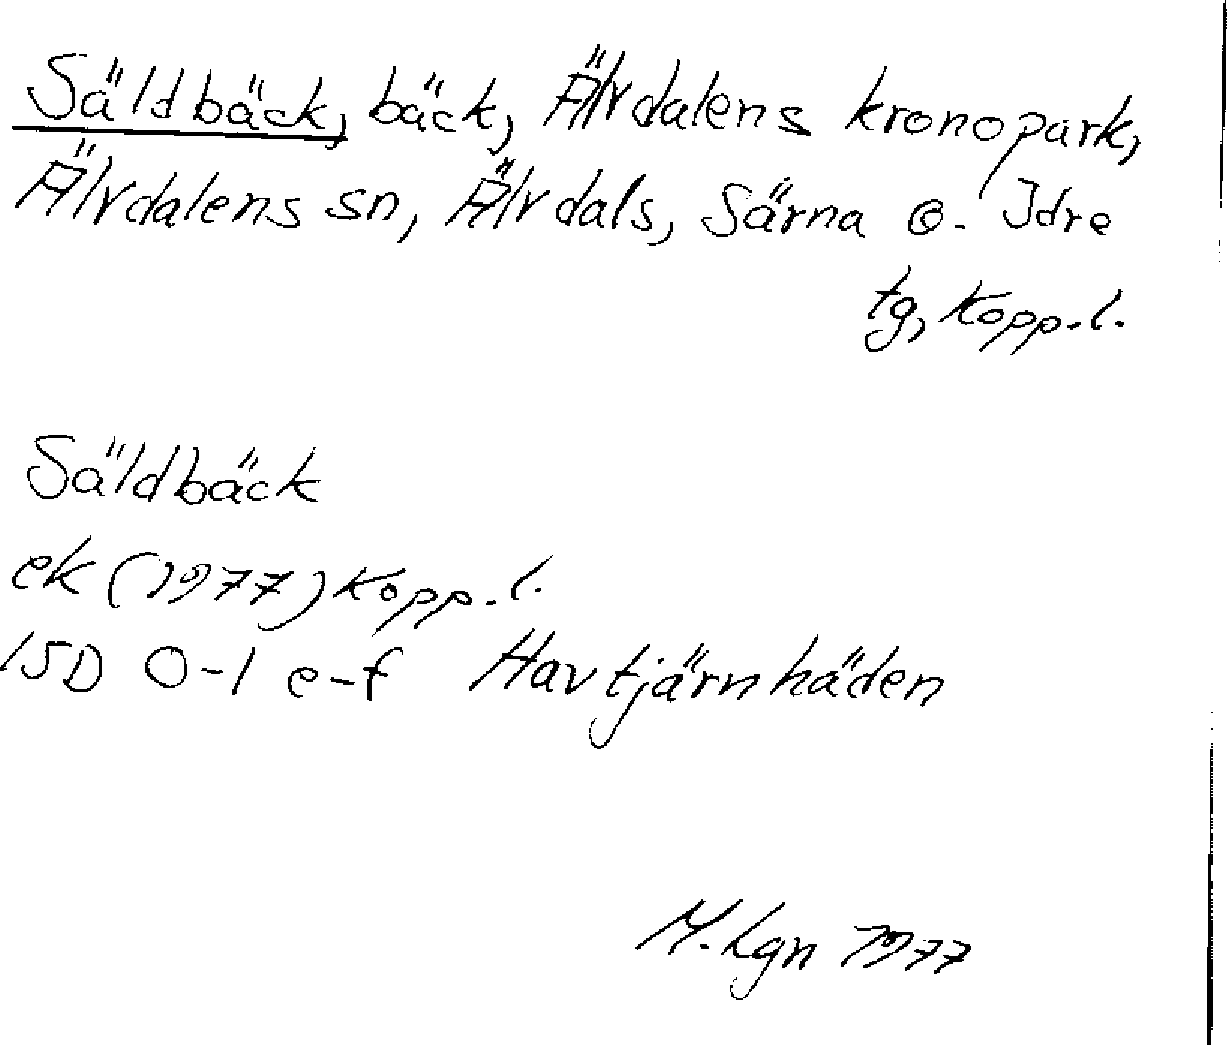 Säldbäck, bäck, Älvdalens kronopark,
Älvdalens sn, Älvdals, Särna o. Idre
tg, Kopp.l.
Säldbäck
ek (1977) Kopp.l.
15D 0-1 e-f Havtjärnhäden
M. Lgn 1977